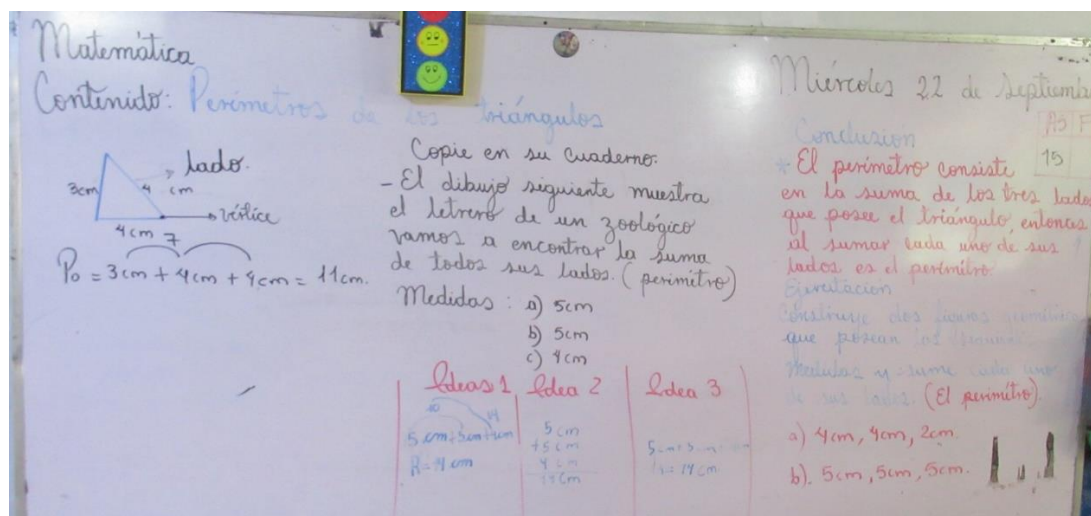 Matemática
Contenido: Perímetros de los triángulos
lado.
3cm
4 cm
vértice
4cm
7
Po = 3cm + 4cm + 4cm = 11cm.
Copie en su cuaderno:
- El dibujo siguiente muestra
el letrero de un zoológico
vamos a encontrar la suma
de todos sus lados. (perímitro)
Medidas: a) 5cm
b) 5cm
c) 4cm
Ideas 1
10 14
5cm+5cm+4cm
R=14cm
Idea 2
5cm
+5cm
4cm
Idea 3
14cm
Miércoles 22 de Septiemb
As F
15
Conclusion
* El perímetro consiste
en la suma de los tres lados
que posee el triángulo, entonces
al sumar cada uno de sus
lados es el perímitro
Ejercitacion
Construye dos figuras
que posean las
medidas y sume cada uno
de sus lados. (El perímitro).
a) 4cm, 4cm, 2cm.
b). 5cm, 5cm, 5cm.